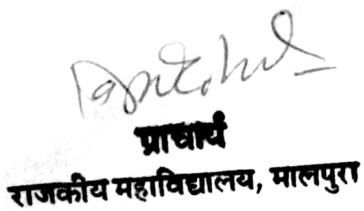 प्राचार्य
राजकीय महाविद्यालय, मालपुरा